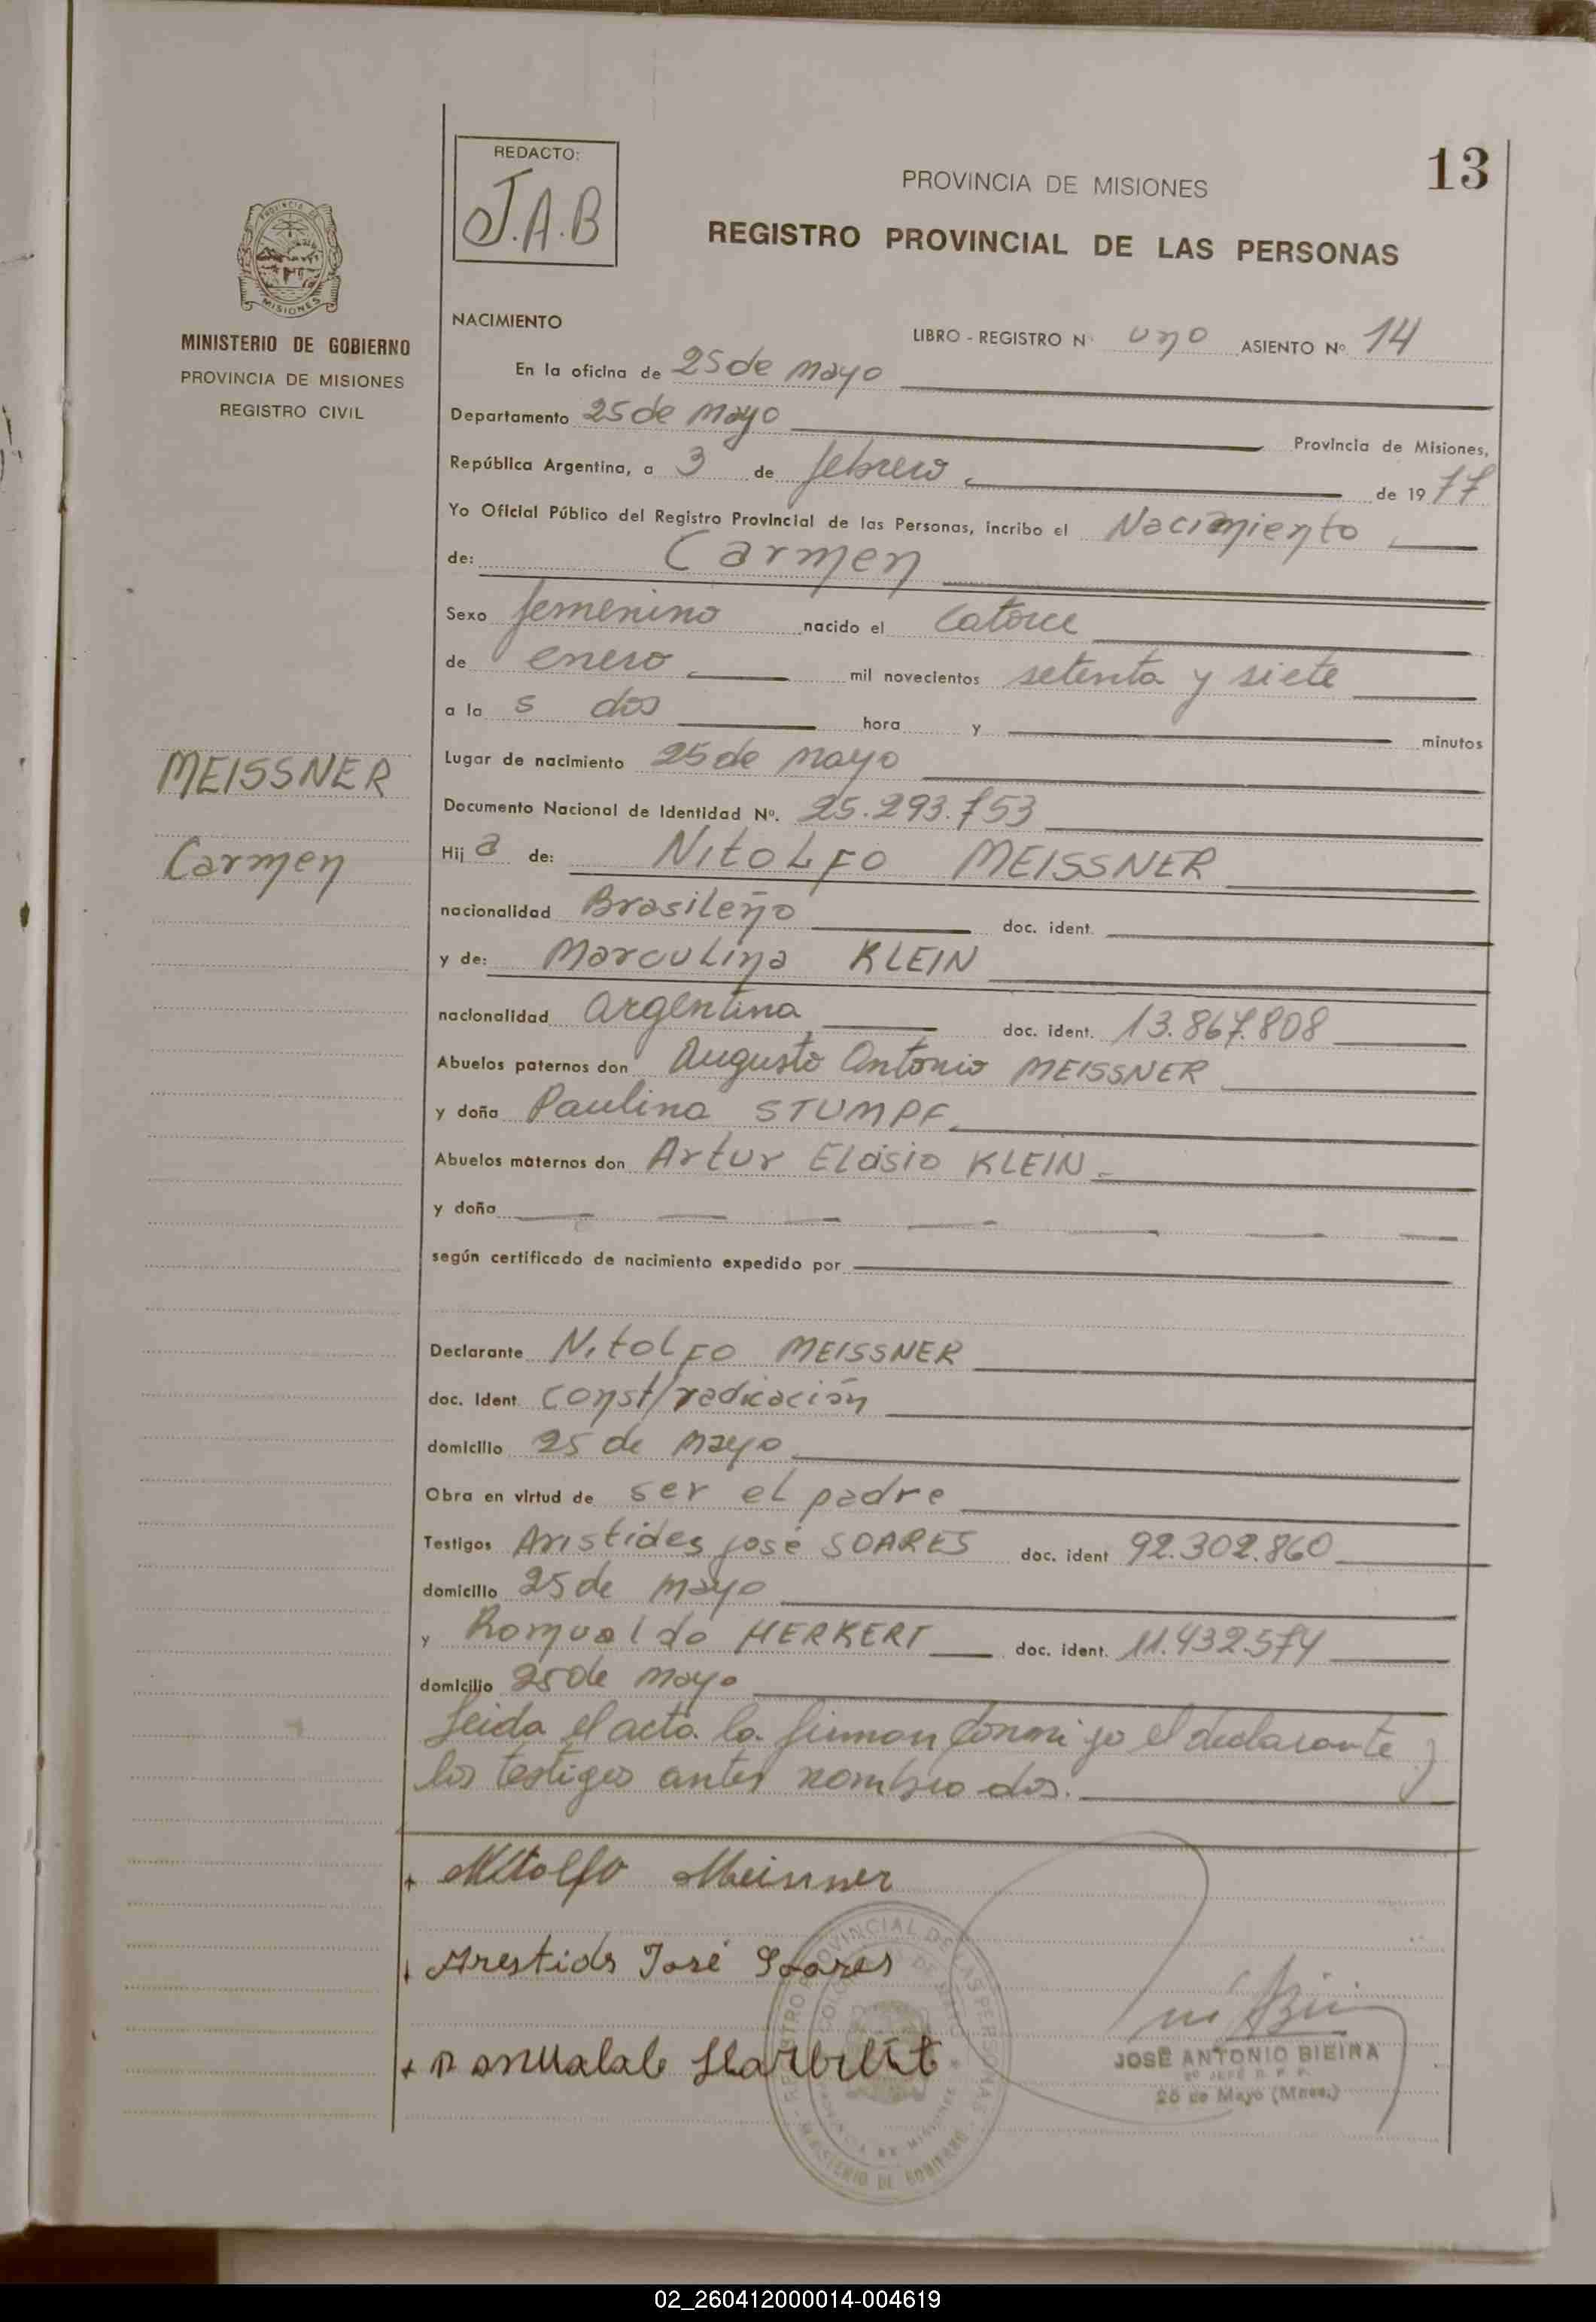 13
REDACTO:
J.A.B
PROVINCIA DE MISIONES
REGISTRO PROVINCIAL DE LAS PERSONAS
PROVINCIA DE
MISIONES
MINISTERIO DE GOBIERNO
PROVINCIA DE MISIONES
REGISTRO CIVIL
NACIMIENTO
LIBRO - REGISTRO N° uno ASIENTO Nº 14
En la oficina de 25 de mayo
Departamento 25 de mayo Provincia de Misiones,
República Argentina, a 3 de febrero de 19 77
Yo Oficial Público del Registro Provincial de las Personas, incribo el Nacimiento
de: Carmen
Sexo femenino nacido el catorce
de enero mil novecientos setenta y siete
a la s dos hora y minutos
Lugar de nacimiento 25 de mayo
MEISSNER
Carmen
Documento Nacional de Identidad Nº. 25.293.753
Hij a de: NitoLFo MEISSNER
nacionalidad Brasileño doc. ident.
y de: Marculina KLEIN
nacionalidad argentina doc. ident. 13.867.808
Abuelos paternos don Augusto Antonio MEISSNER
y doña Paulina STUMPF
Abuelos maternos don Artur Elasio KLEIN
y doña
según certificado de nacimiento expedido por
Declarante NitoLFo MEISSNER
doc. Ident. const/radicación
domicilio 25 de mayo
Obra en virtud de ser el padre
Testigos Aristides José SOARES doc. ident 92.302.860
domicilio 25 de mayo
y Romualdo HERKERT doc. ident. 11.432.574
domicilio 25 de mayo
Leida el acta la firman conmigo el declarante y
los testigos antes nombrados.
Nitolfo Meissner
Arestids José Soares
REGISTRO PROVINCIAL DE LAS PERSONAS
MINISTERIO DE GOBIERNO
JOSE ANTONIO BIEIRA
25 de Mayo (Mnes.)
02_260412000014-004619